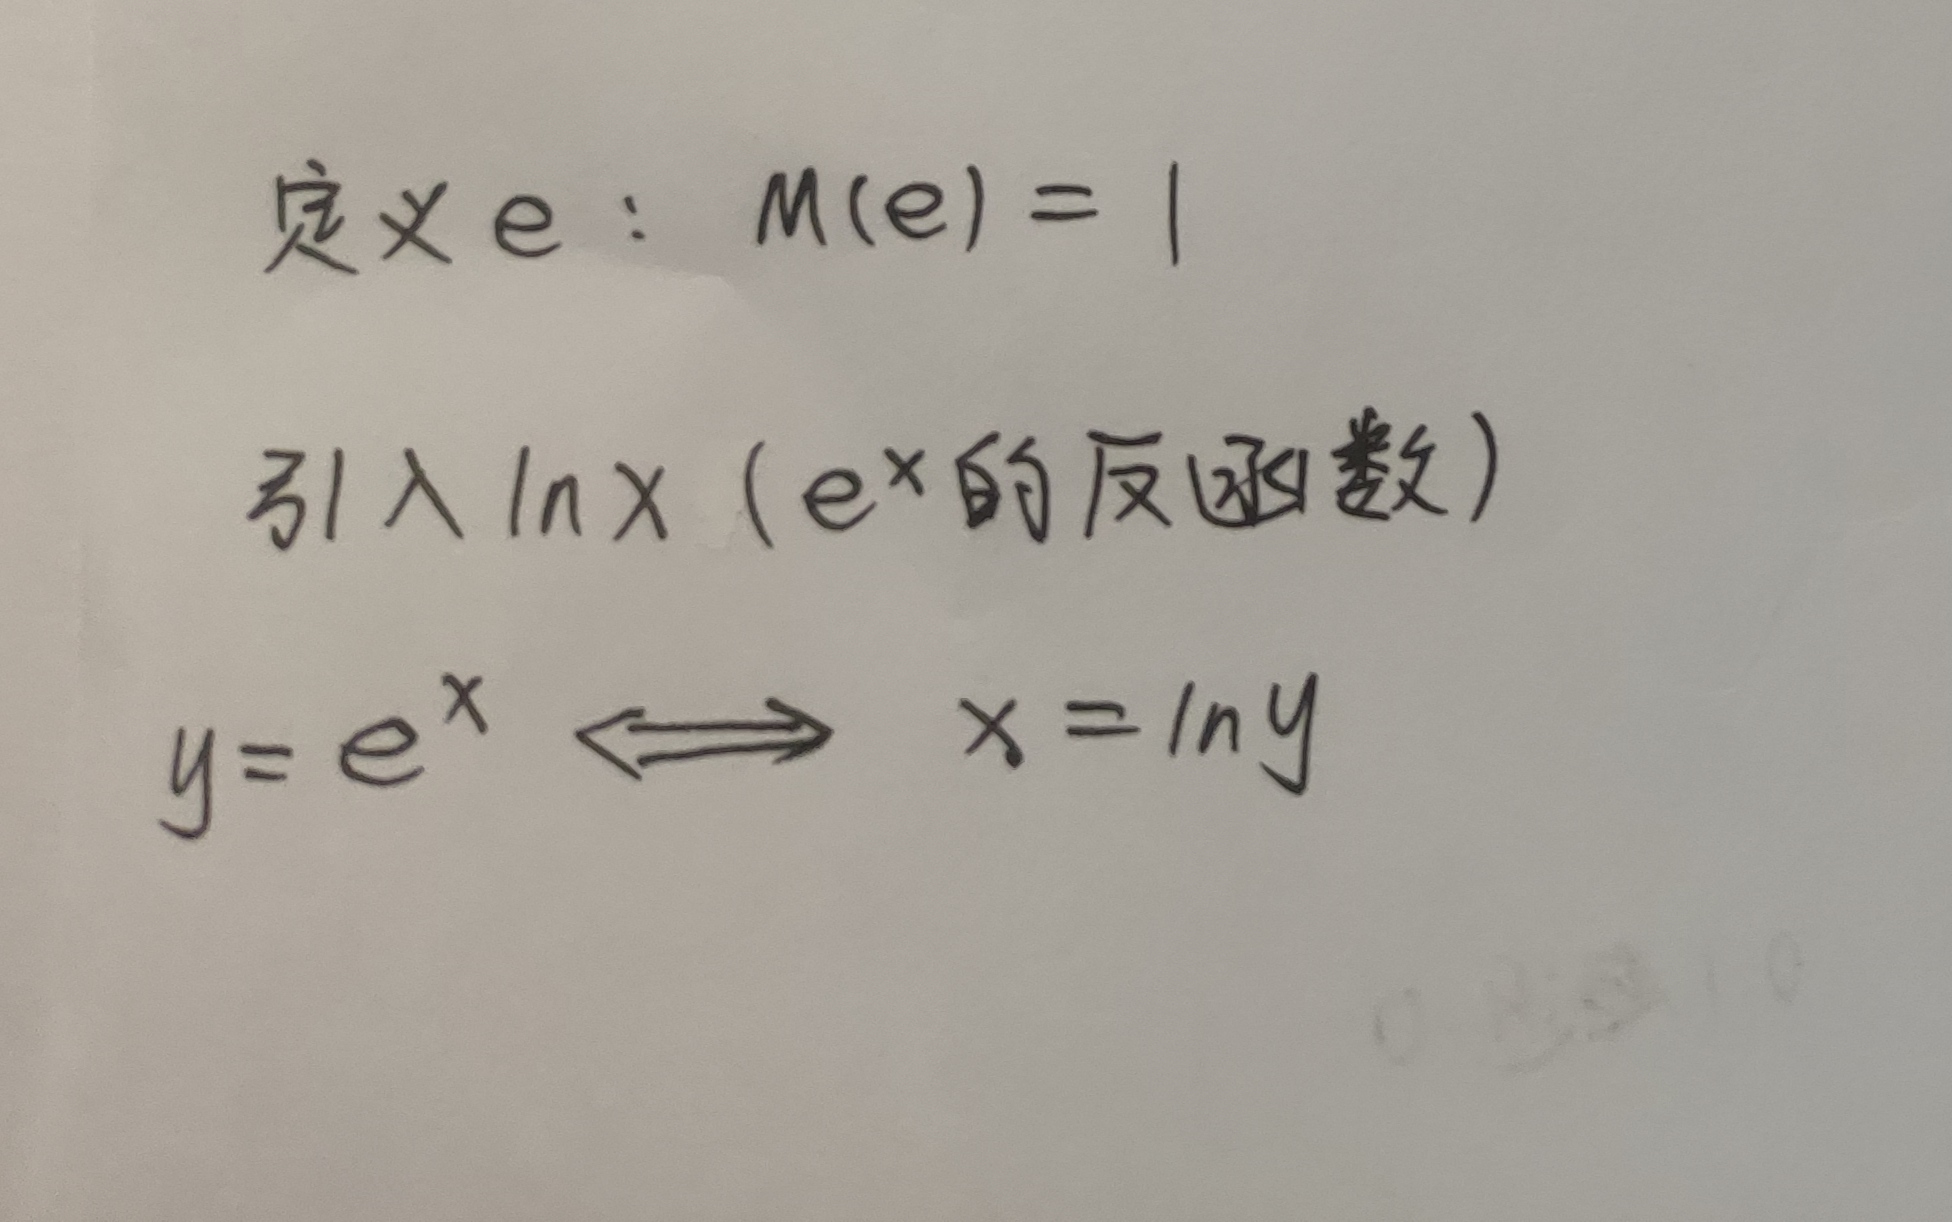 定义e: M(e) = 1
引入 ln x (eˣ的反函数)
y = eˣ ⟺ x = ln y